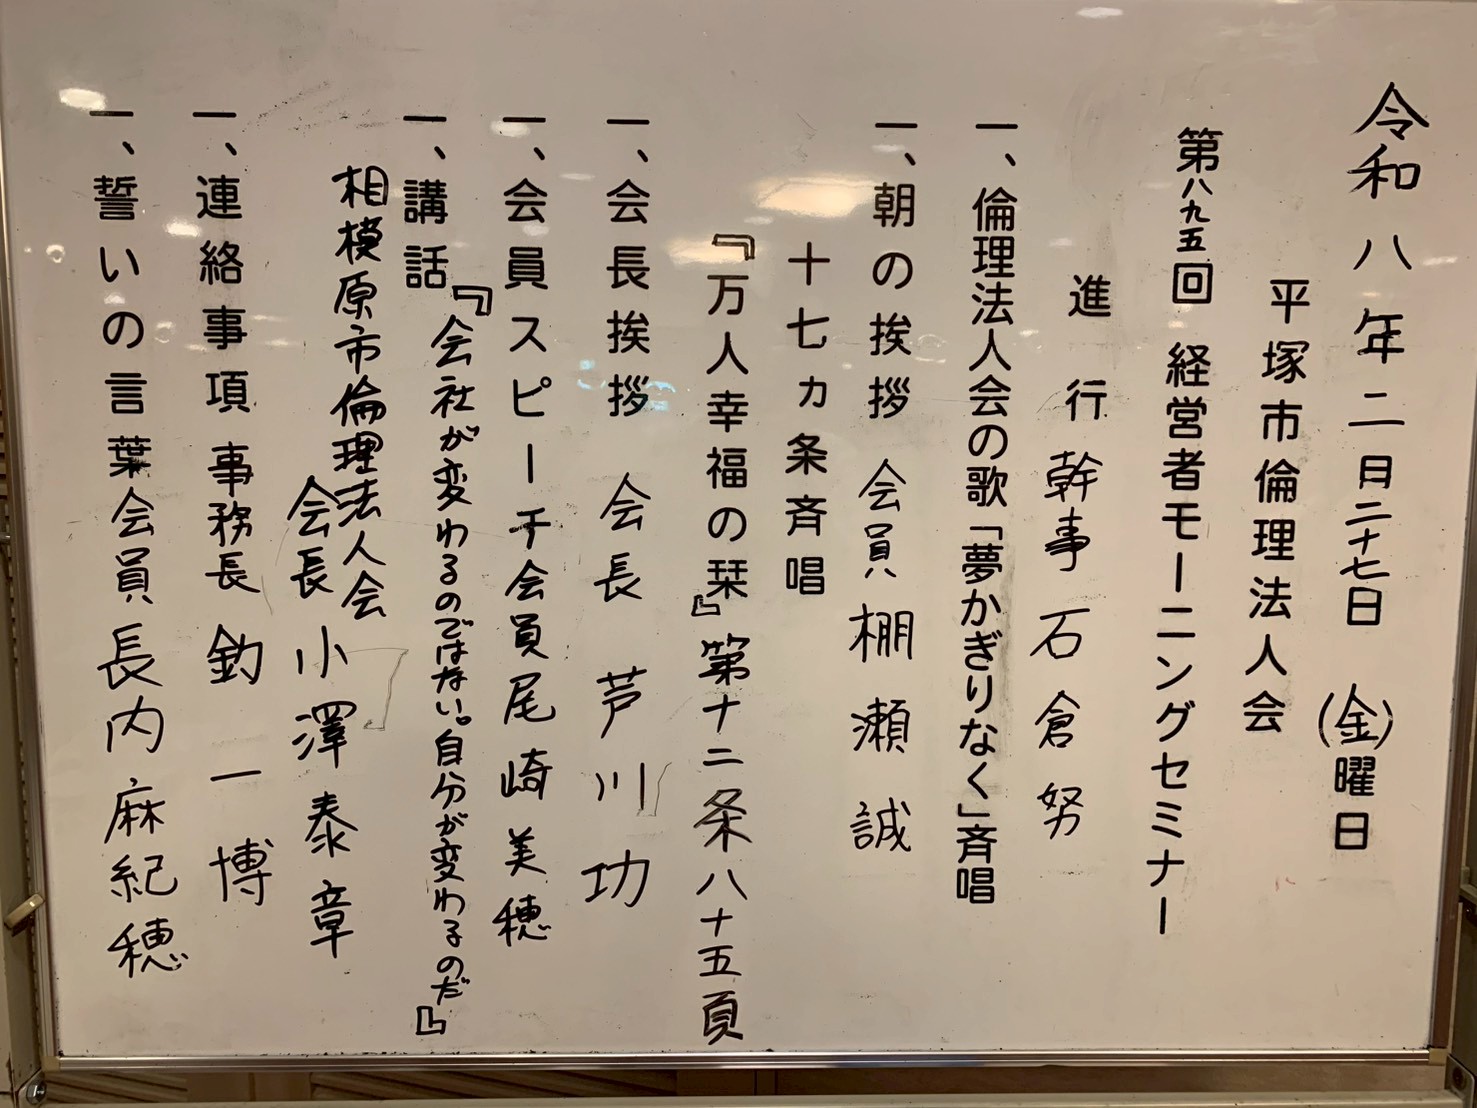 令和八年二月二十七日(金)曜日
平塚市倫理法人会
第八九五回 経営者モーニングセミナー
進行 幹事 石倉 努
一、倫理法人会の歌「夢かぎりなく」斉唱
一、朝の挨拶 会員 棚瀬 誠
十七ヵ条斉唱
『万人幸福の栞』第十二条八十五頁
一、会長挨拶 会長 芦川 功
一、会員スピーチ 会員 尾崎美穂
一、講話『会社が変わるのではない。自分が変わるのだ』
相模原市倫理法人会
会長 小澤泰章
一、連絡事項 事務長 釣 一博
一、誓いの言葉 会員 長内麻紀穂